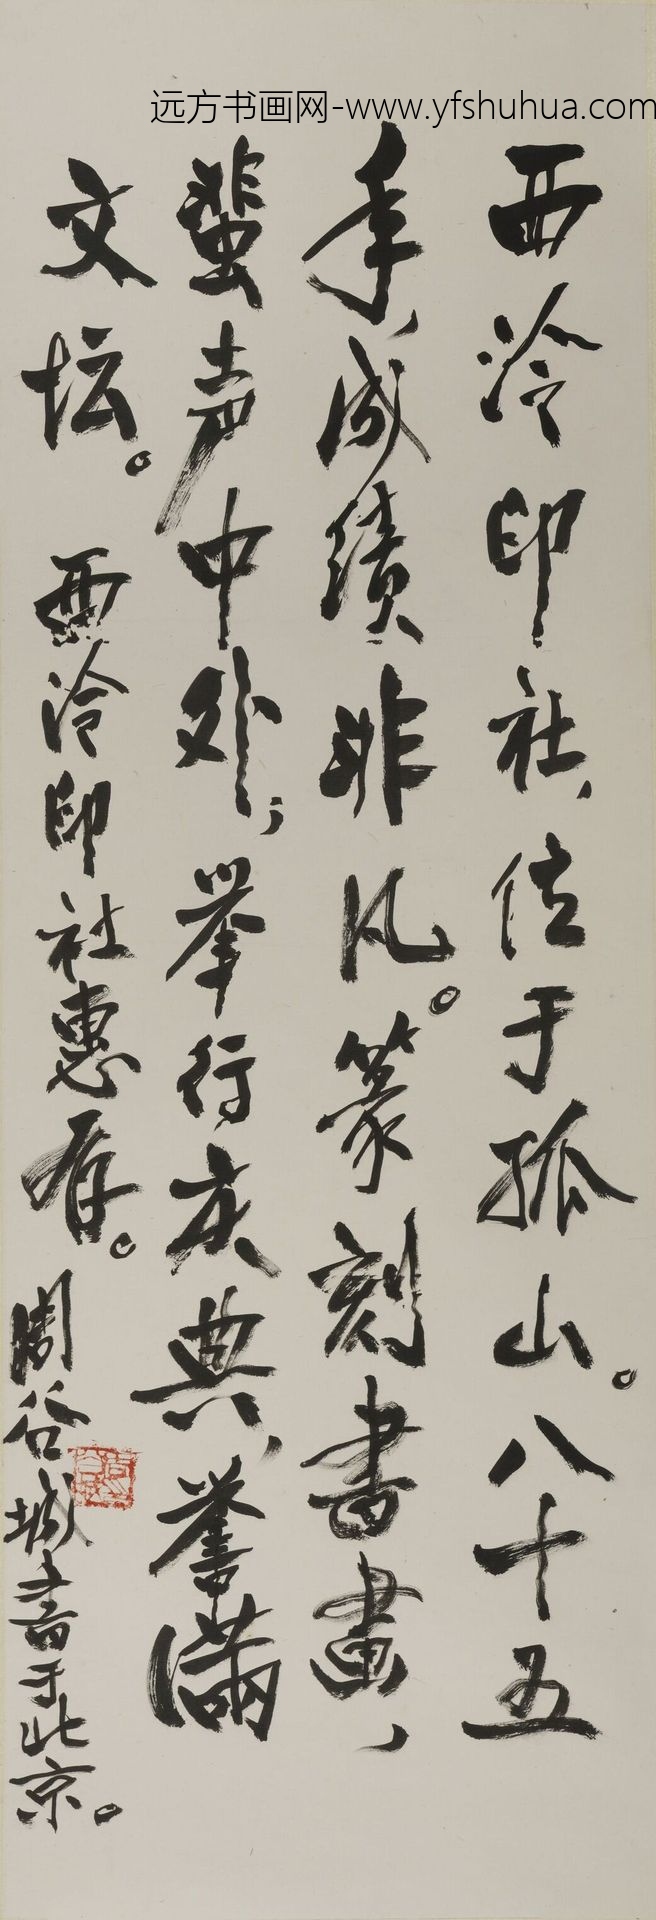 远方书画网-www.yfshuhua.com
西泠印社,位于孤山。八十五
年,成绩非凡。篆刻书画,
蜚声中外,举行庆典,誉满
文坛。西泠印社惠存。
周谷城书于北京。